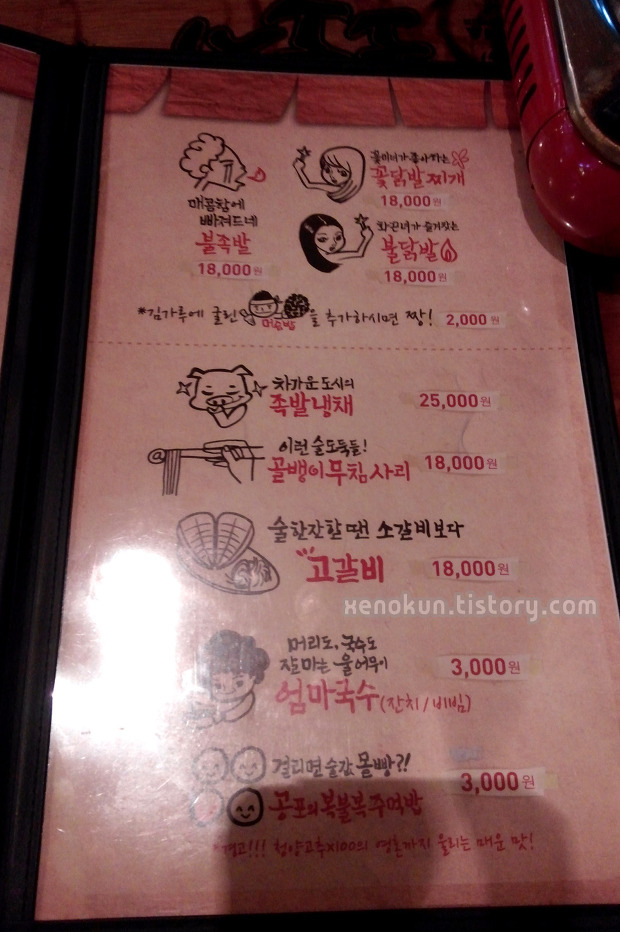 꽃미녀가 좋아하는
꽃닭발찌개
18,000원
매콤함에
빠져드네
불족발
18,000원
화끈녀가 즐겨찾는
불닭발
18,000원
*김가루에 굴린 머슴밥 을 추가하시면 짱! 2,000원
차가운 도시의
족발냉채 25,000원
이런 술도둑들!
골뱅이무침사리 18,000원
술한잔할땐 소갈비보다
고갈비 18,000원
xenokun.tistory.com
머리도, 국수도
잘 마는 울어무이 3,000원
엄마국수(잔치/비빔)
걸리면 술값 몰빵?!
3,000원
공포의 복불복 주먹밥
*경고!!! 청양고추X100의 영혼까지 울리는 매운 맛!